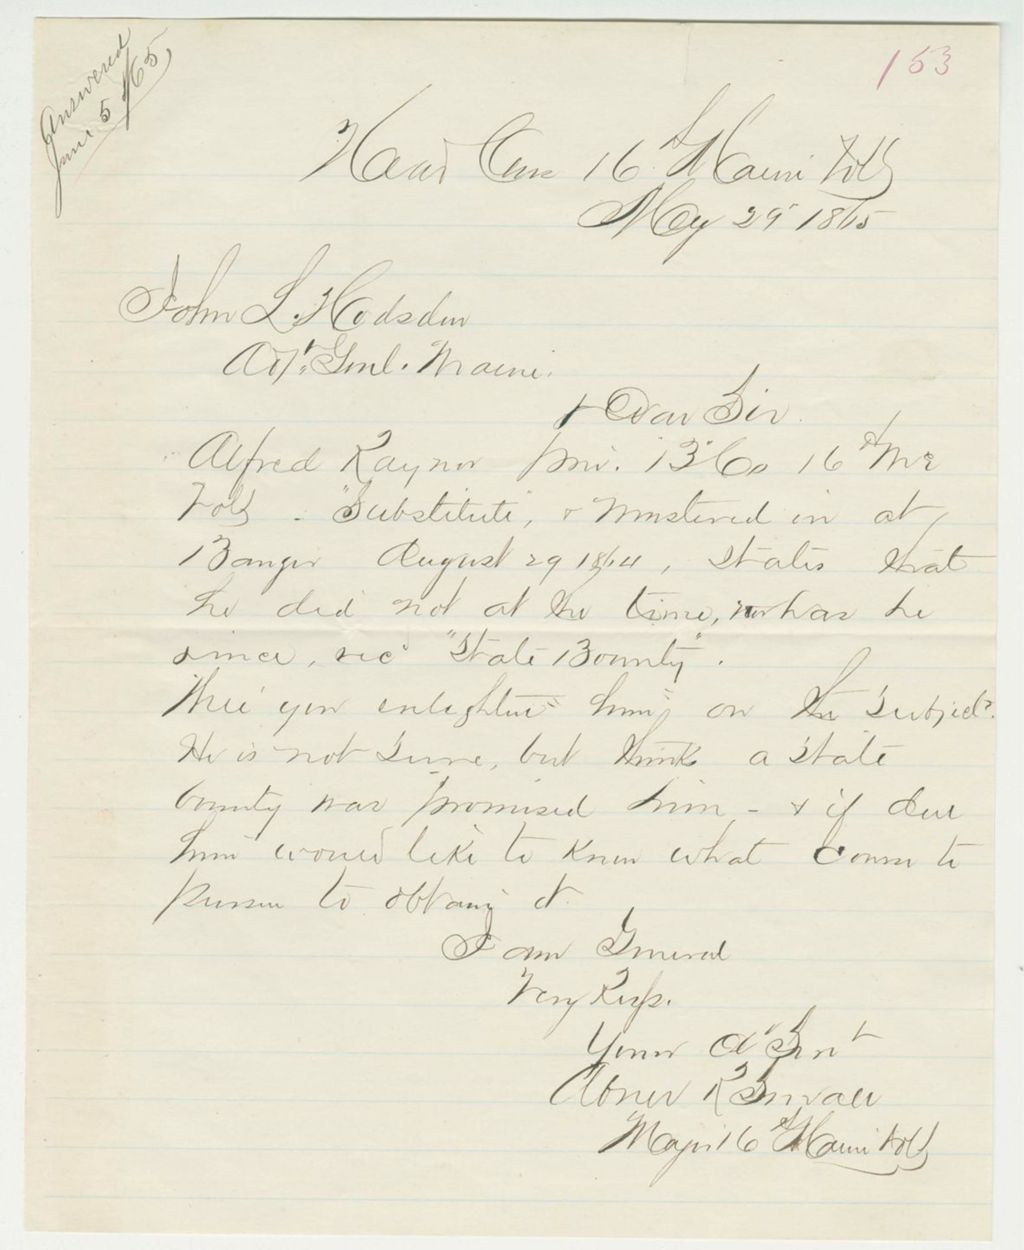 Answered
June 5 /65
153
Head Qrs 16th Maine Vols
May 29th 1865
John L. Hodsdon
Adjt. Genl. Maine.
Dear Sir.
Alfred Raynor priv. "B" Co 16th Me
Vols - "Substitute", & mustered in at
Bangor August 29 1864, states that
he did not at the time, nor has he
since, recd "State Bounty".
Will you enlighten him on the subject.
He is not sure, but thinks a State
bounty was promised him - & if due
him would like to know what course to
pursue to obtain it
I am General
Very Resp.
Your Obt Svnt
Abner R Small
Major 16th Maine Vols